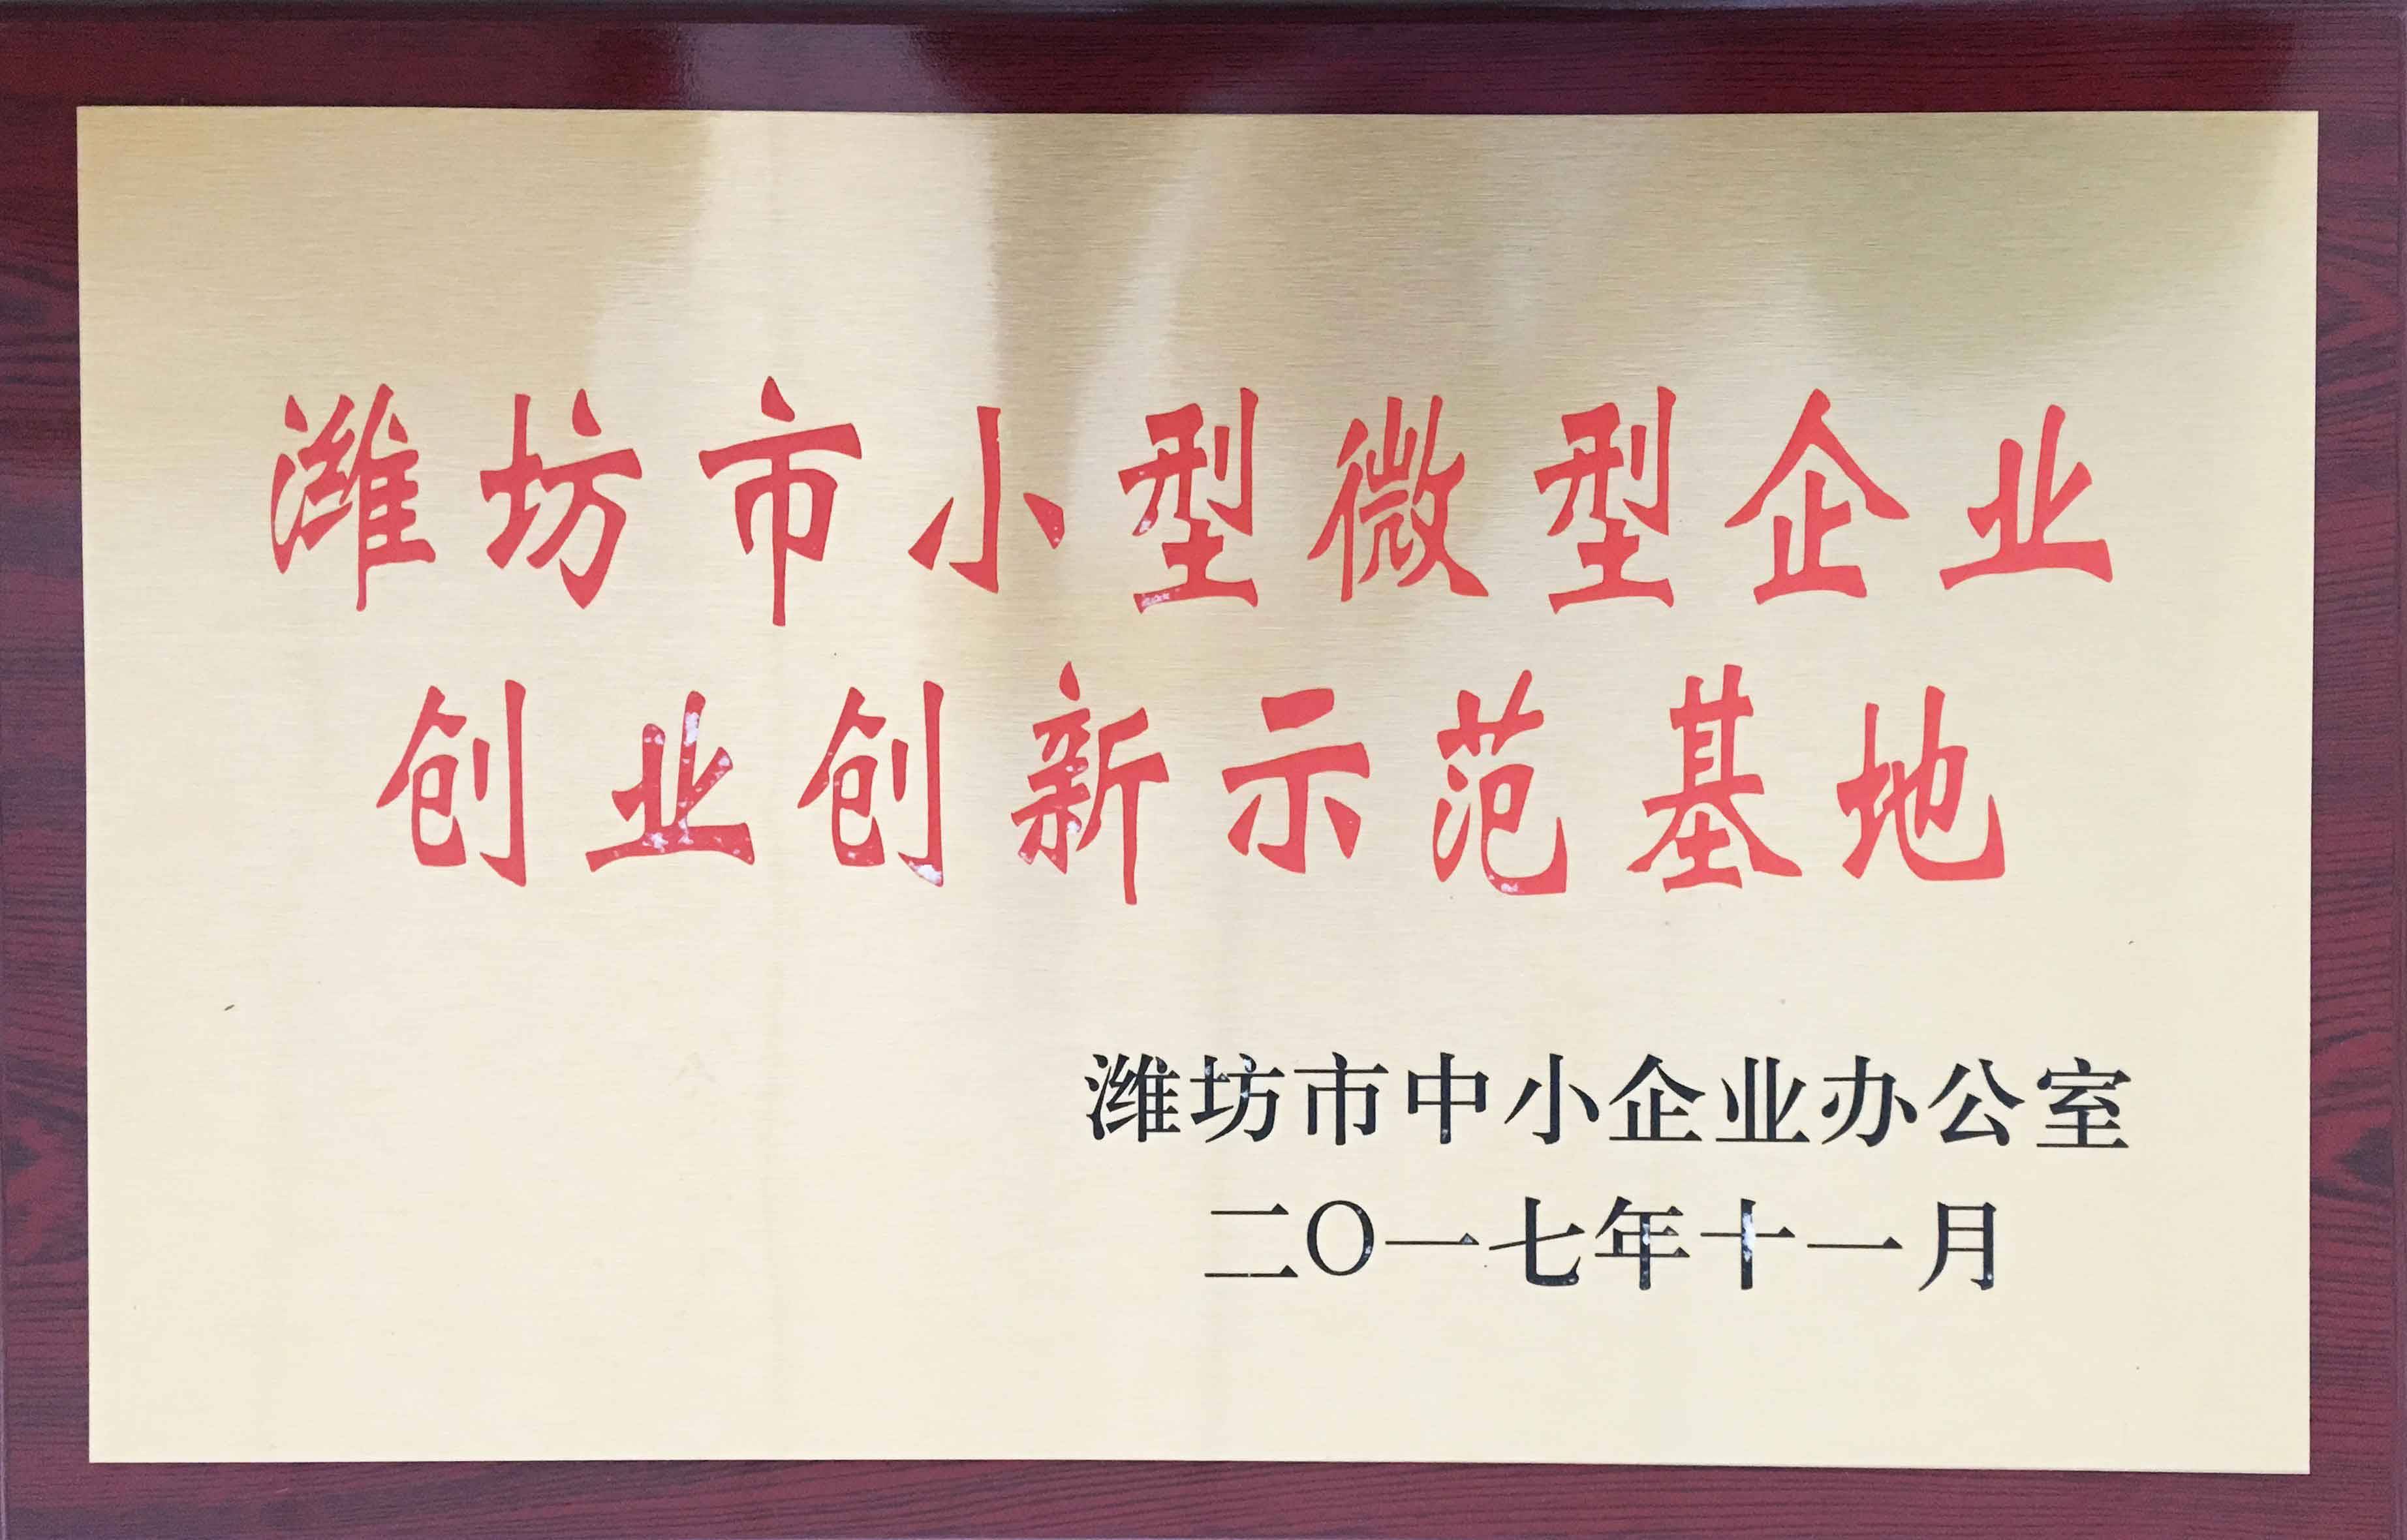 潍坊市小型微型企业
创业创新示范基地
潍坊市中小企业办公室
二〇一七年十一月